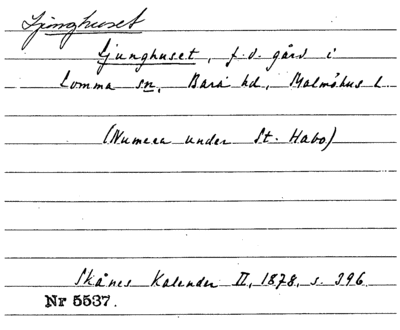 Ljunghuset
Ljunghuset, f.d. gård i
Lomma sn, Bara hd, Malmöhus l.
(Numera under St. Habo)
Skånes Kalender II, 1878, s. 396
Nr 5537.